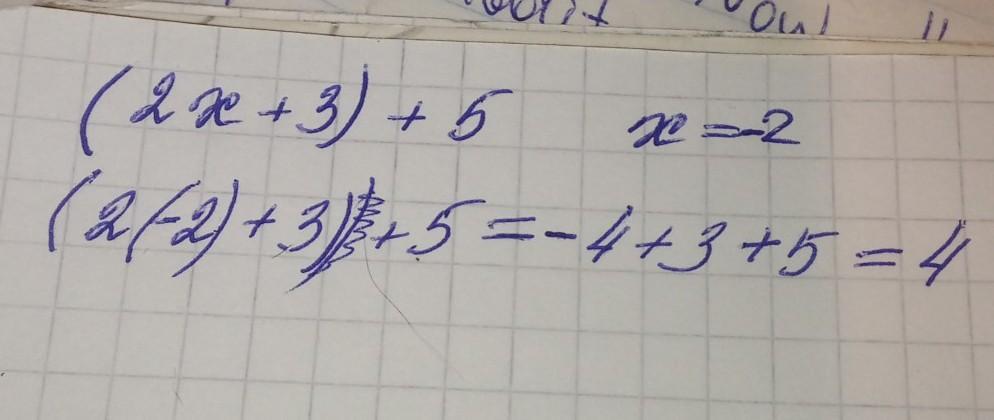 (2x+3)+5 x=-2
(2(-2)+3)+5=-4+3+5=4